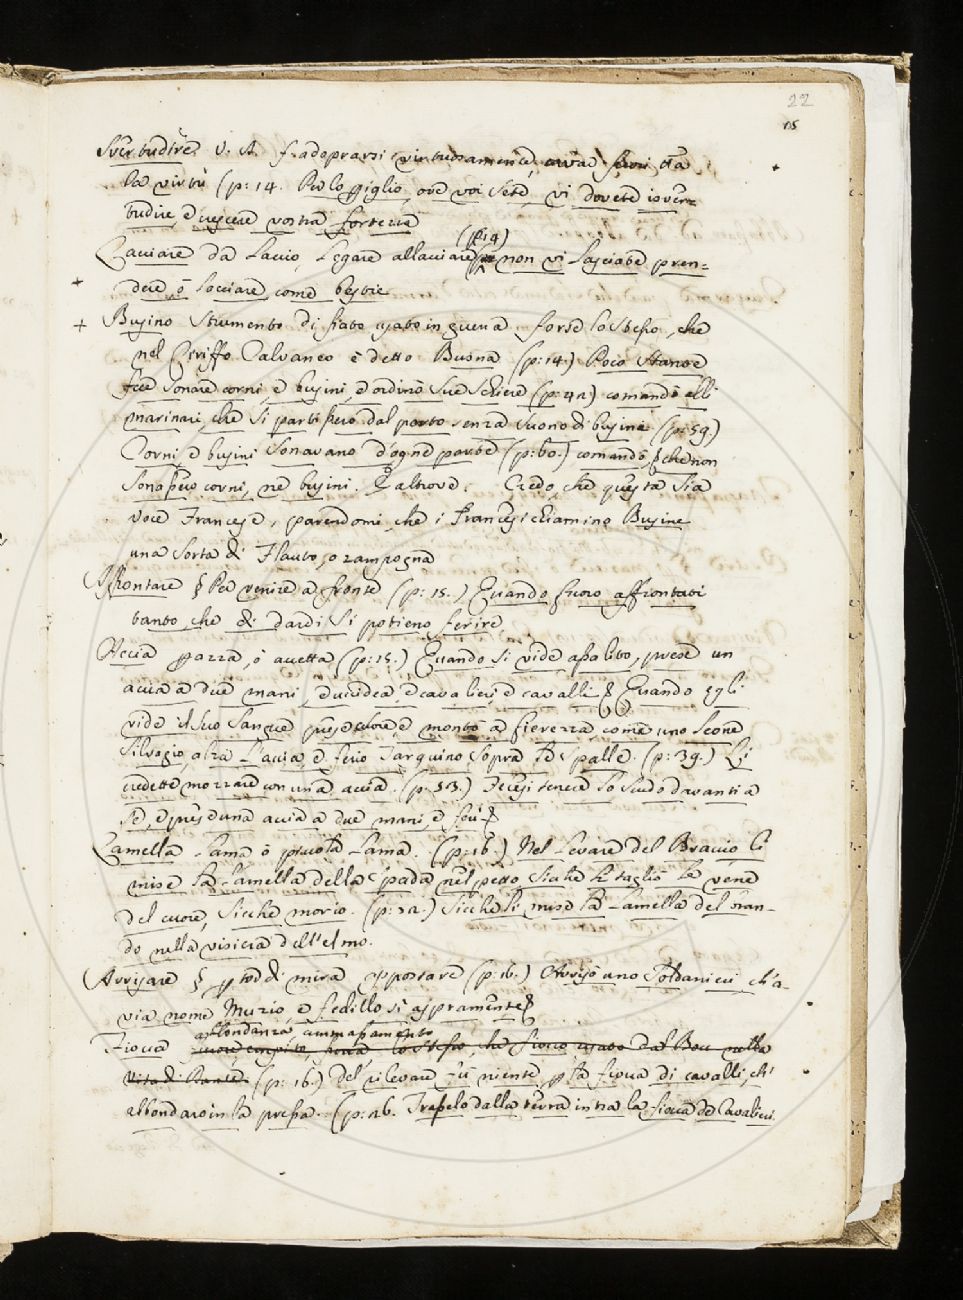 22
15
Svertudire V. A. f. adoprarsi virtuosamente, fuori
la virtù (p: 14. Perlo giglio, ove voi sete, vi dovete isver=
tudire, e crescere vostra fortezza
(p: 14)
Lacciare da Laccio, Legare allacciare non vi lasciate pren=
dere, ò lacciare come bestie
Businо Strumento di fiato usato in guerra, forse lo stesso, che
nel Ciriffo Calvaneo è detto Busna (p: 14.) Poco stante
fece sonare corni, e busini, e ordinò sue schiere (p: 42) comandò alli
marinari, che si partissero dal porto senza suono di busine (p: 59.)
Corni, e busini sonavano d'ogne parte (p: 60.) comandò, che non
sonassero corni, nè busini. E altrove. Credo, che questa sia
voce Francese, parendomi, che i Francesi chiamino Busine
una sorta di Flauto, o zampogna
Affrontare Per venire a fronte (p: 15.) Quando furo affrontati
tanto, che di dardi si potieno ferire
Accia azza, ò accetta (p: 15.) Quando si vide assalito, prese un
accia a due mani, e uccidea, e cavalieri, e cavalli Quando egli
vide il suo sangue prese cuore, e montò a fierezza, come uno leone
silvagio, alza l'accia, e ferio Tarquino sopra le spalle. (p: 39.) Li
credette mozzare con una accia. (p: 53.) Fecesi tenere lo scudo davanti a
sè, e prese una accia a due mani, e ferì
Lamella Lama ò piccola Lama. (p: 16.) Nel levare del Braccio li
mise la Lamella della spada nel petto sicchè li tagliò le vene
del cuore, sicchè morìo. (p: 32.) Sicchè li mise la Lamella del bran-
do nella visiera dell'elmo.
Avvisare mira appostare (p: 16.) Avvisò uno Soldanieri, ch'a-
via nome Murzio, e fedillo sì aspramente
abbondanza ammassamento
Fioccа lo stesso, che fiocco usato dal Bocc. nella
Vita di Dante. (p: 16.) Del rilevare fù niente, p la fiocca di cavalli, ch'
abbondaro in la pressa. (p: 26. Trasselo dalla terra intra la fiocca de Cavalieri.